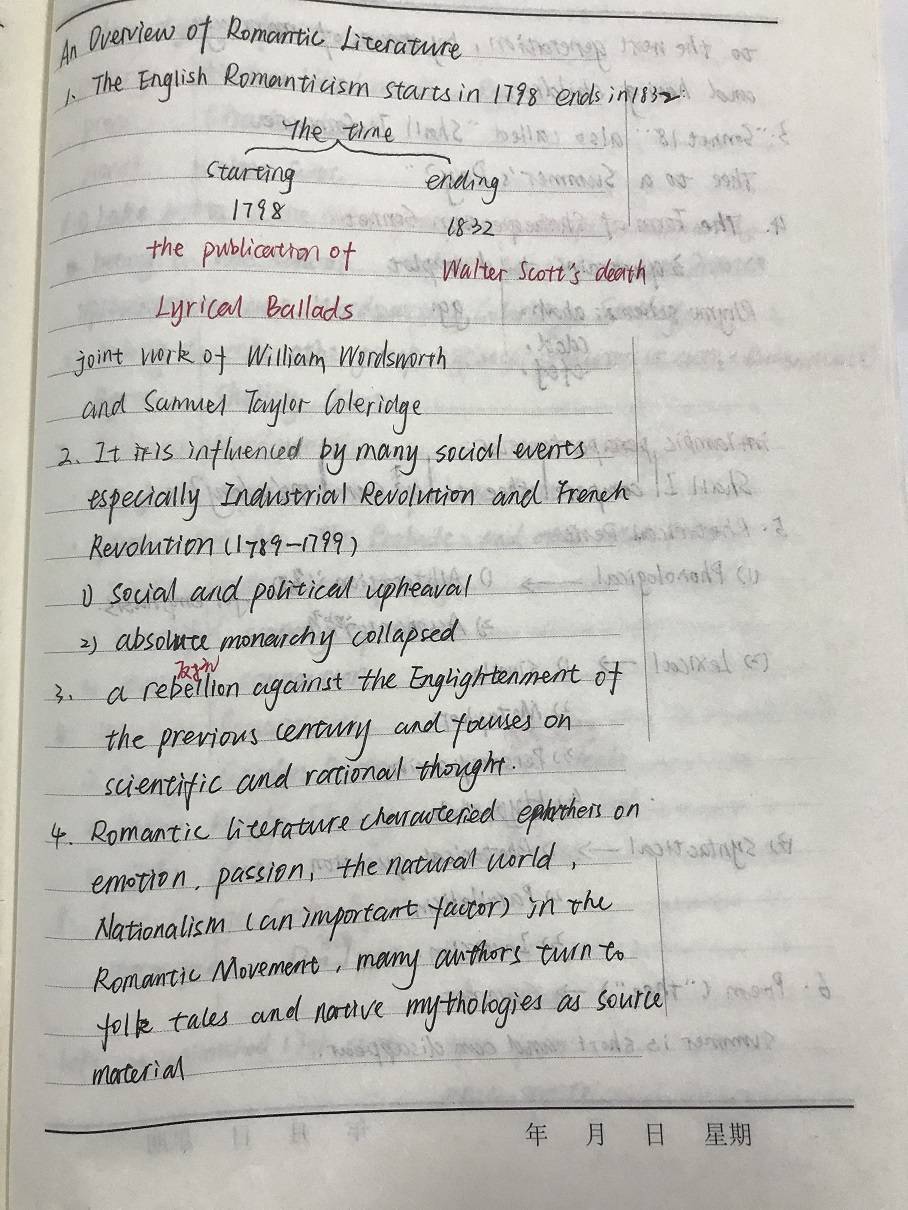 An Overview of Romantic Literature
1. The English Romanticism starts in 1798 ends in 1832.
The time
starting ending
1798 1832
the publication of Walter Scott's death
Lyrical Ballads
joint work of William Wordsworth
and Samuel Taylor Coleridge
2. It it is influenced by many social events
especially Industrial Revolution and French
Revolution (1789-1799)
1) social and political upheaval
2) absolute monarchy collapsed
反叛
3. a rebellion against the Englightenment of
the previous century and focuses on
scientific and rational thought.
4. Romantic literature characteried on
emotion, passion, the natural world,
Nationalism (an important factor) in the
Romantic Movement, many authors turn to
folk tales and native mythologies as source
material
年 月 日 星期